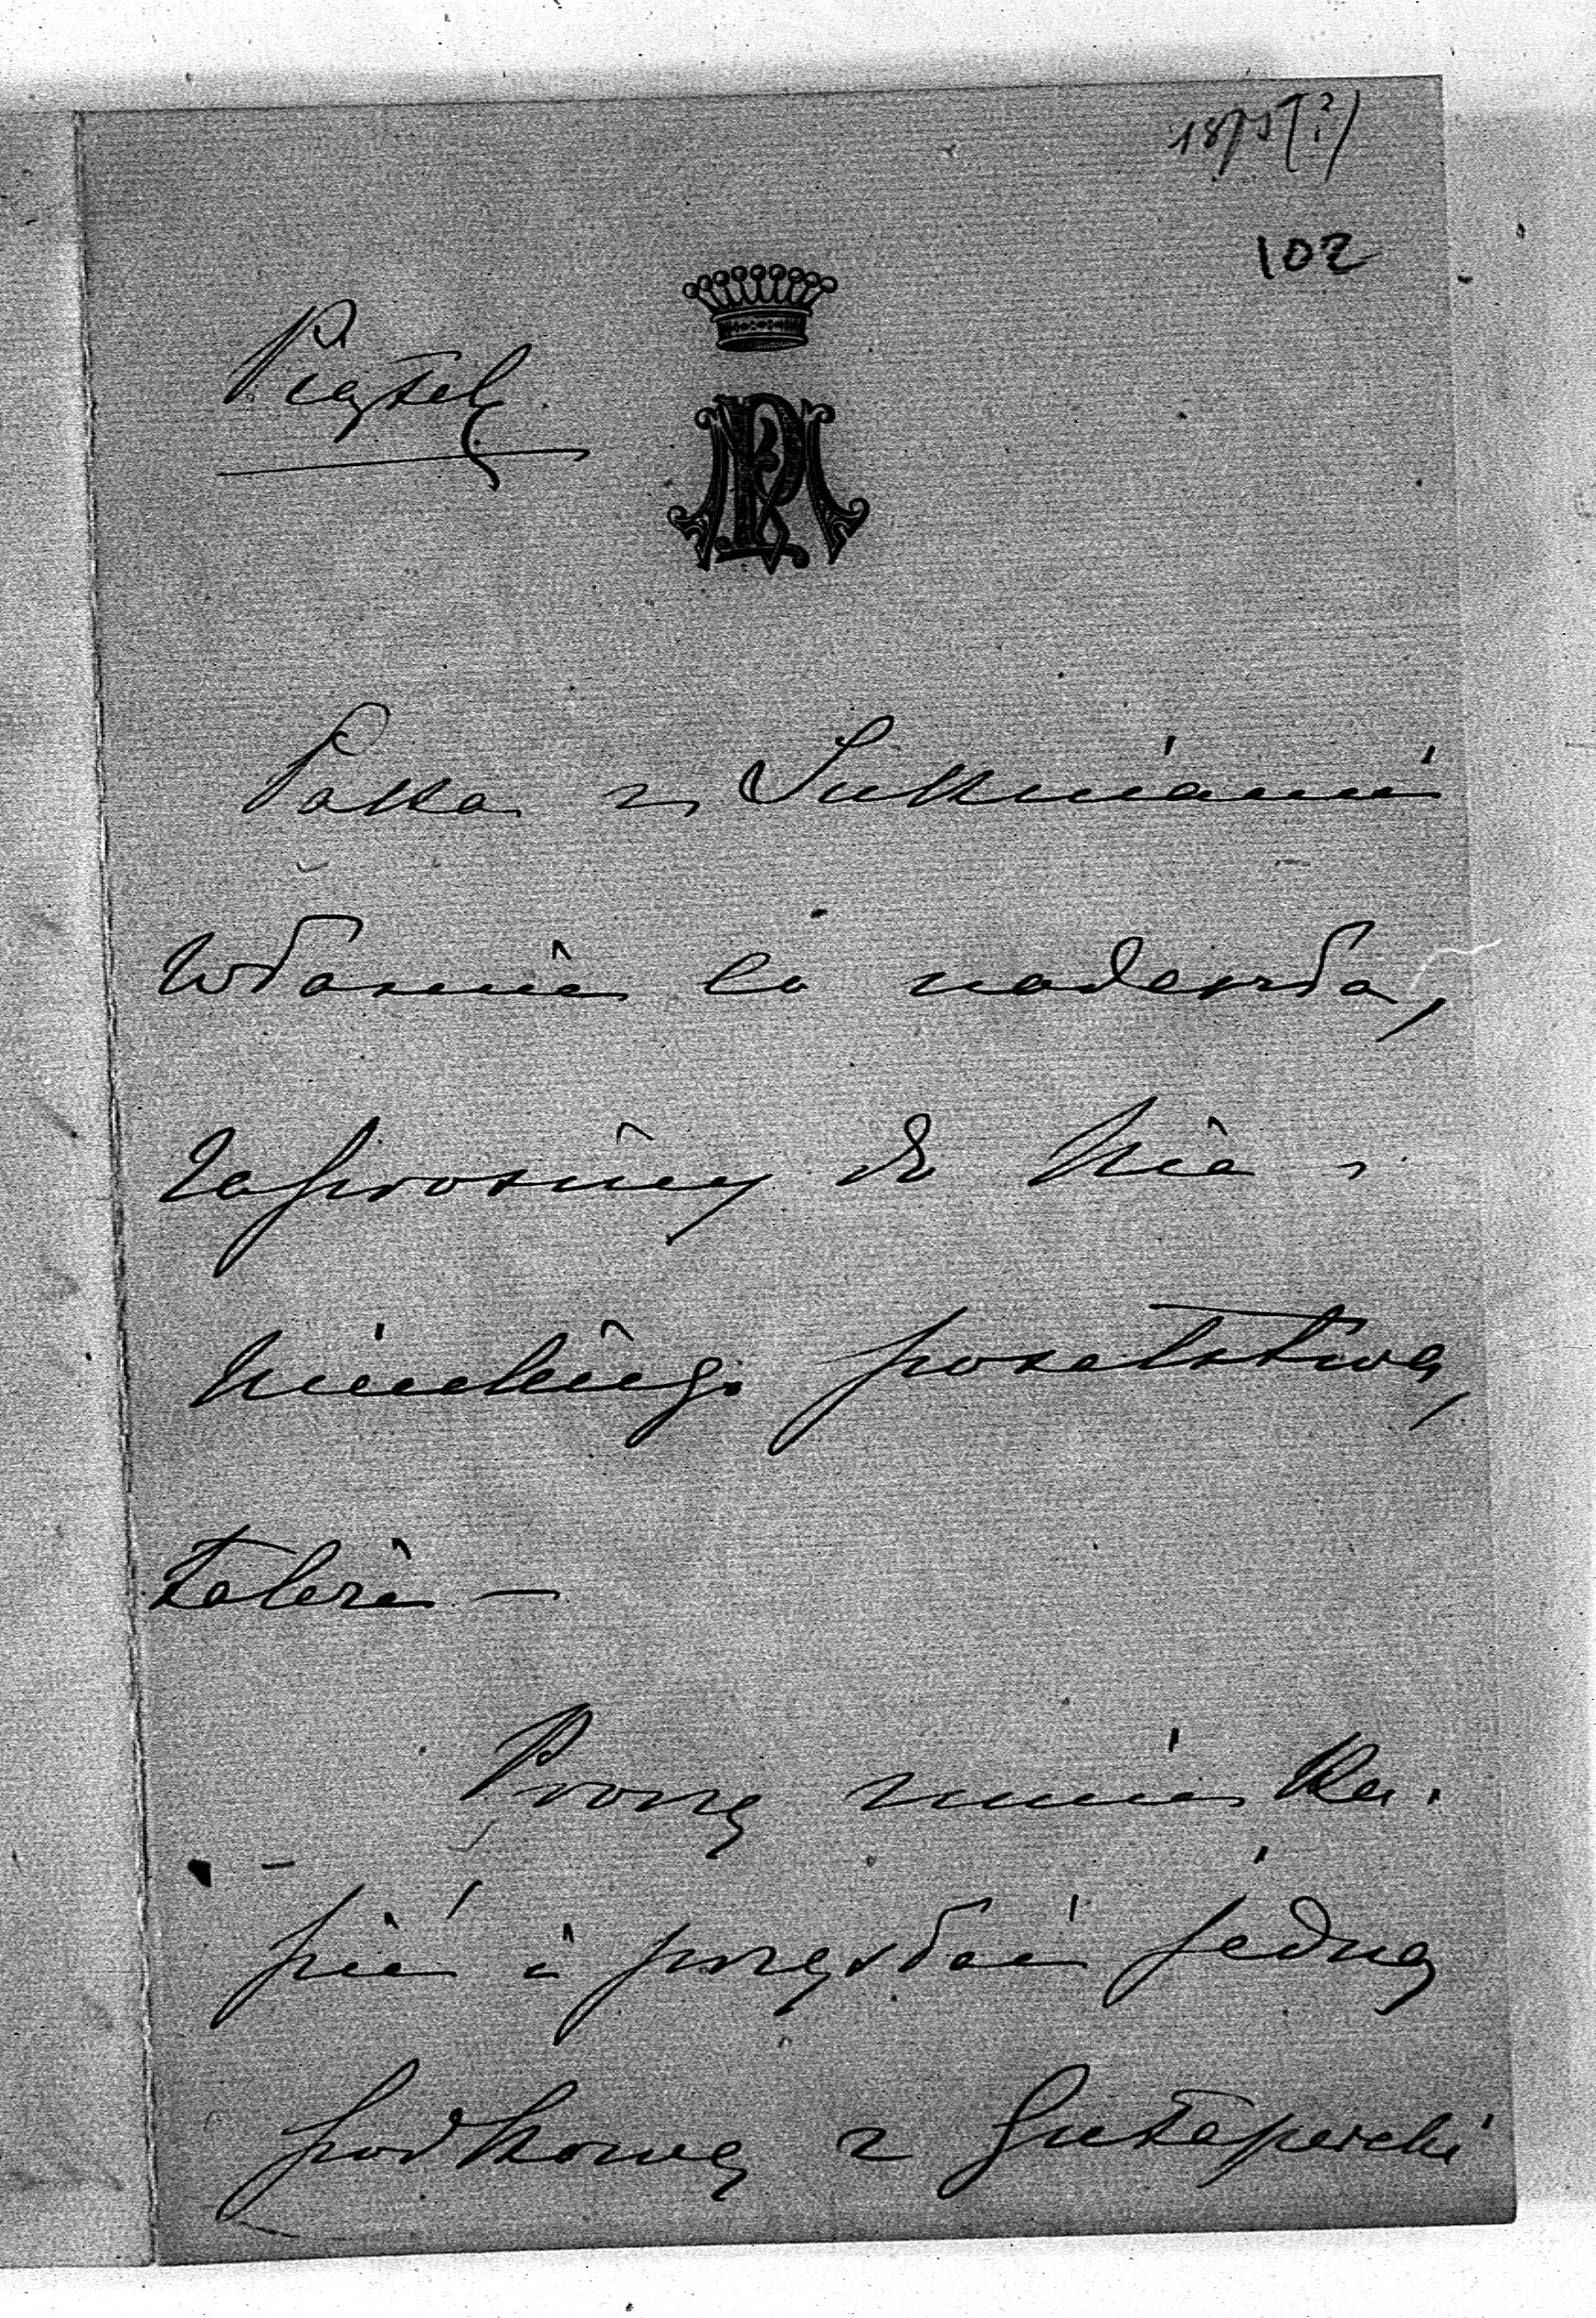 1875 (?)
102
Piątek
Paka z Sukniami
właśnie co nadeszła,
zaprosimy do Nie-
mieckiego poselstwa,
także —
Proszę mnie ku-
pić i przysłać jedną
podkowę z Gutaperchi